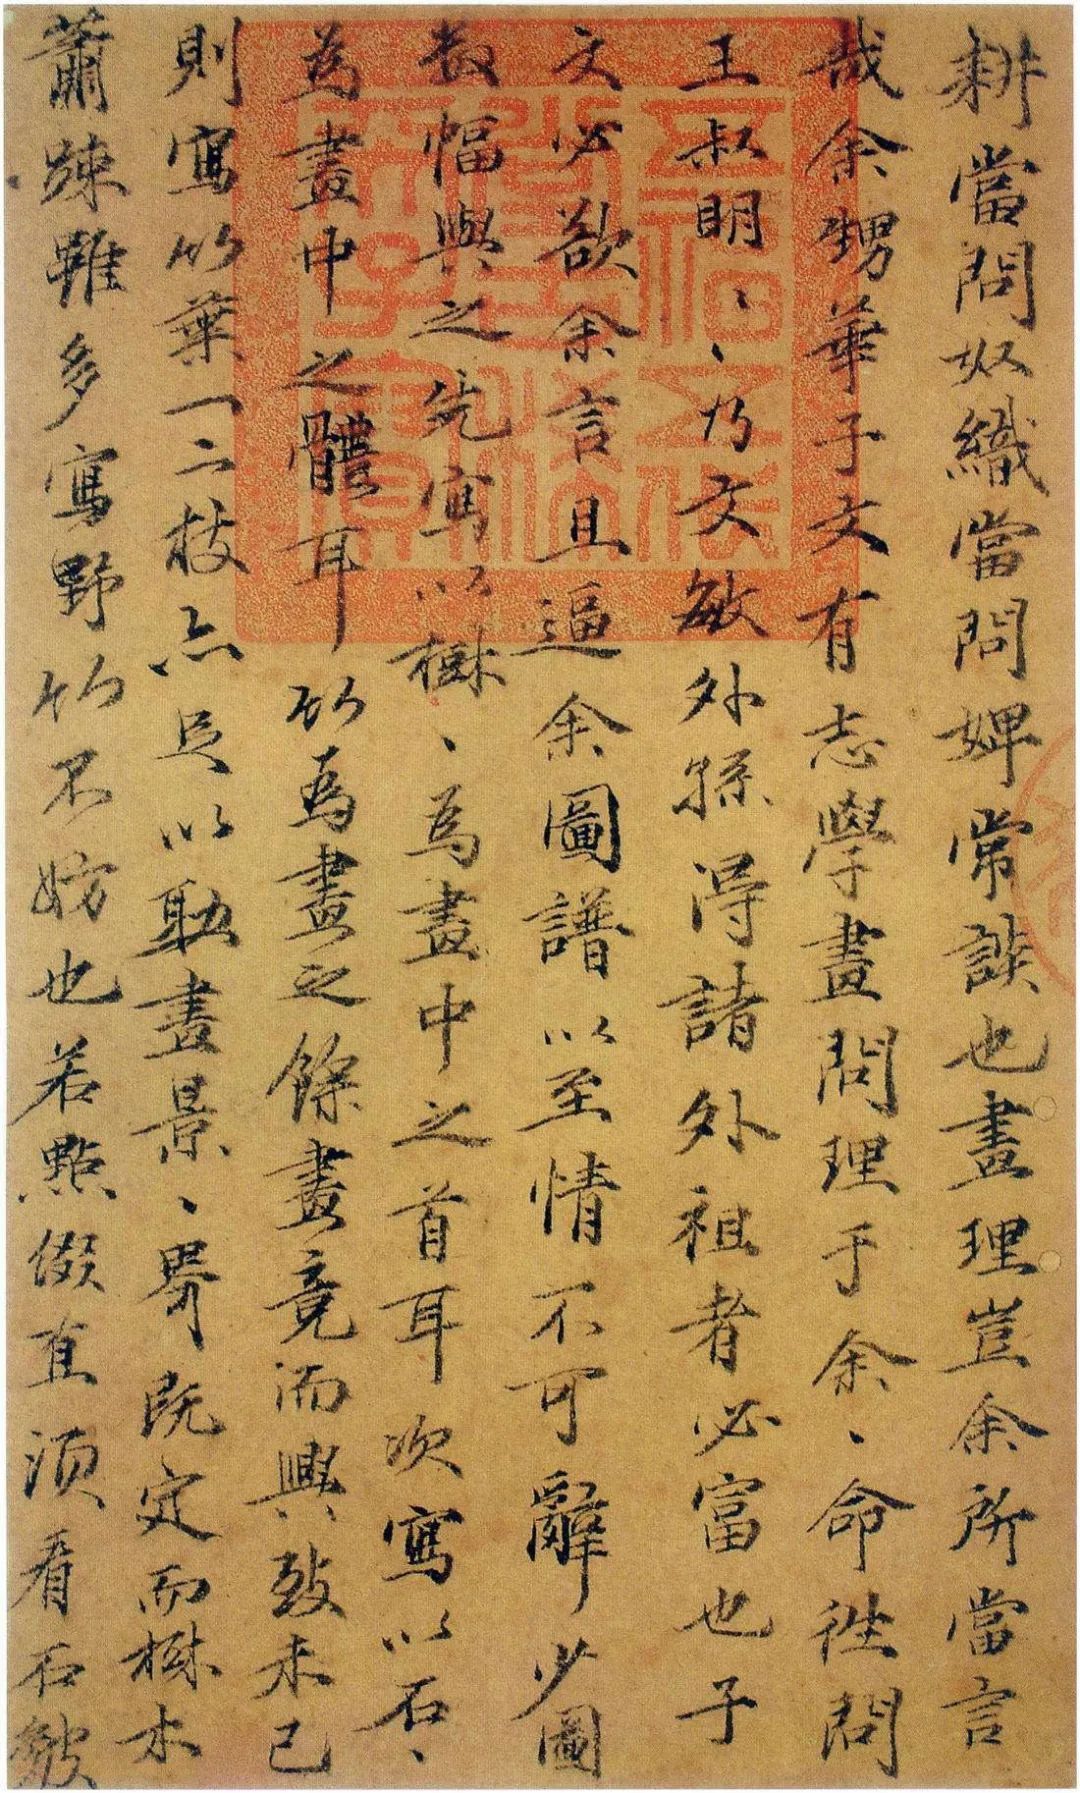 耕當問奴織當問婢常談也畫理豈余所當言
哉余甥華子文有志學畫問理于余、命往問
王叔明、、乃文敏外孫得諸外祖者必富也子
文必欲余言且逼余圖譜以至情不可辭少圖
數幅與之先寫以樹、為畫中之首耳次寫以石、
為畫中之體耳竹為畫之餘畫竟而興致未已
則寫竹葉一二枝亦足以助畫景、界既定而樹木
蕭疎雖多寫野竹不妨也若點綴直須看石皴
五福五代堂古稀天子寶